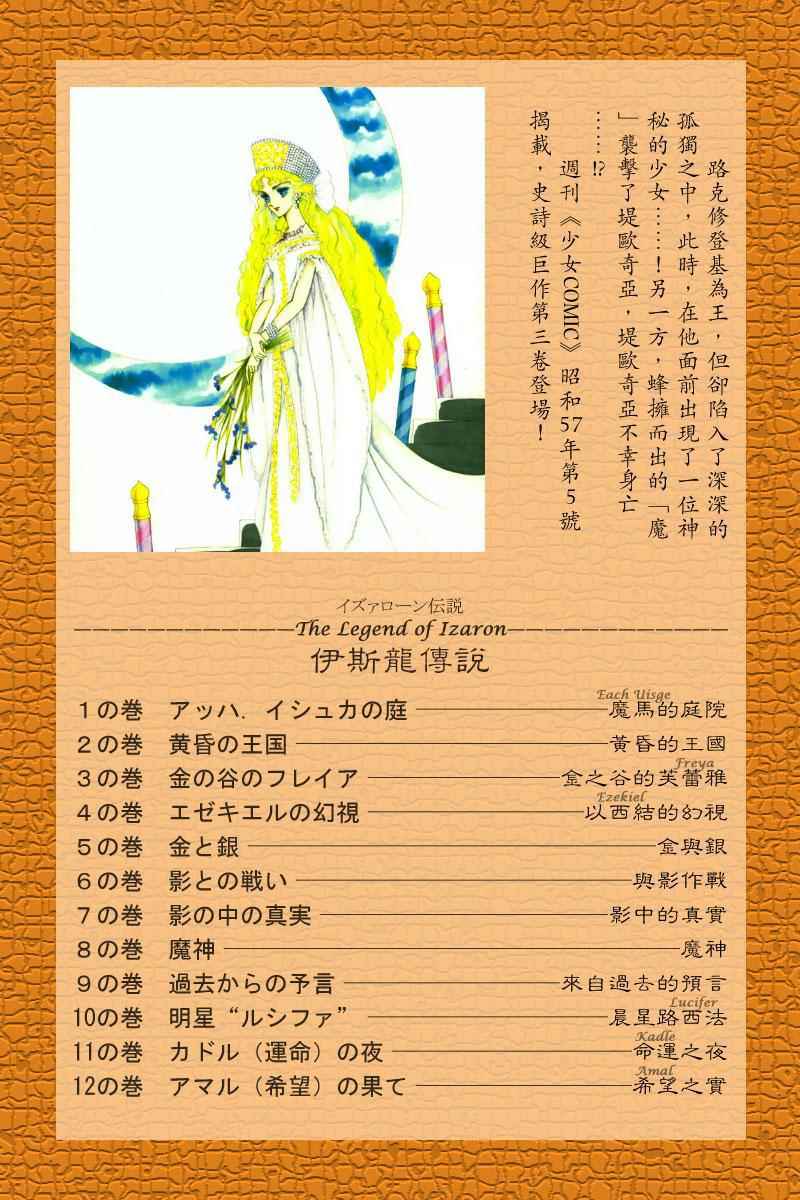 路克修登基為王，但卻陷入了深深的
孤獨之中，此時，在他面前出現了一位神
秘的少女……！另一方，蜂擁而出的「魔
」襲擊了堤歐奇亞，堤歐奇亞不幸身亡
……!?
週刊《少女COMIC》昭和57年第5號
揭載，史詩級巨作第三卷登場！
イズァローン伝説
The Legend of Izaron
伊斯龍傳說
1の巻 アッハ．イシュカの庭 Each Uisge 魔馬的庭院
2の巻 黄昏の王国 黃昏的王國
3の巻 金の谷のフレイア Freya 金之谷的芙蕾雅
4の巻 エゼキエルの幻視 Ezekiel 以西結的幻視
5の巻 金と銀 金與銀
6の巻 影との戦い 與影作戰
7の巻 影の中の真実 影中的真實
8の巻 魔神 魔神
9の巻 過去からの予言 來自過去的預言
10の巻 明星“ルシファ” Lucifer 晨星路西法
11の巻 カドル（運命）の夜 Kadle 命運之夜
12の巻 アマル（希望）の果て Amal 希望之實